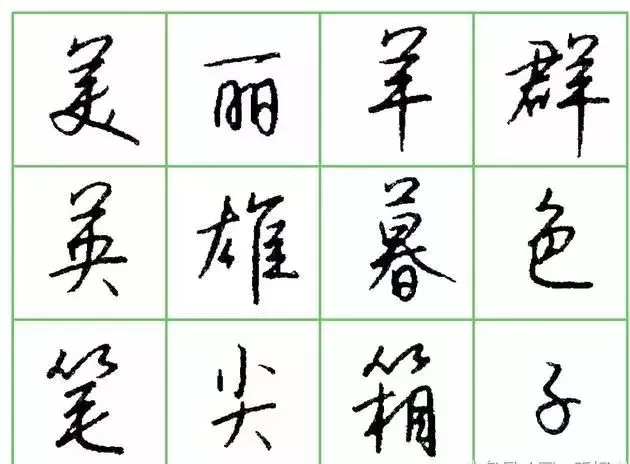 美丽羊群
英雄暮色
笔尖箱子